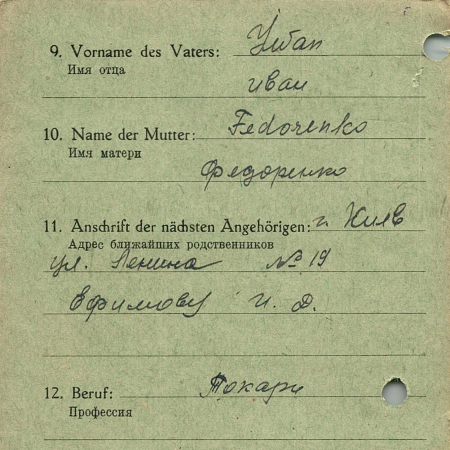 9. Vorname des Vaters: Иван
Имя отца
иван
10. Name der Mutter: Fedorenko
Имя матери
Федоренко
11. Anschrift der nächsten Angehörigen: г. Киев
Адрес ближайших родственников
ул. Ленина № 19
Ефимову И. Ф.
12. Beruf: Токарь
Профессия